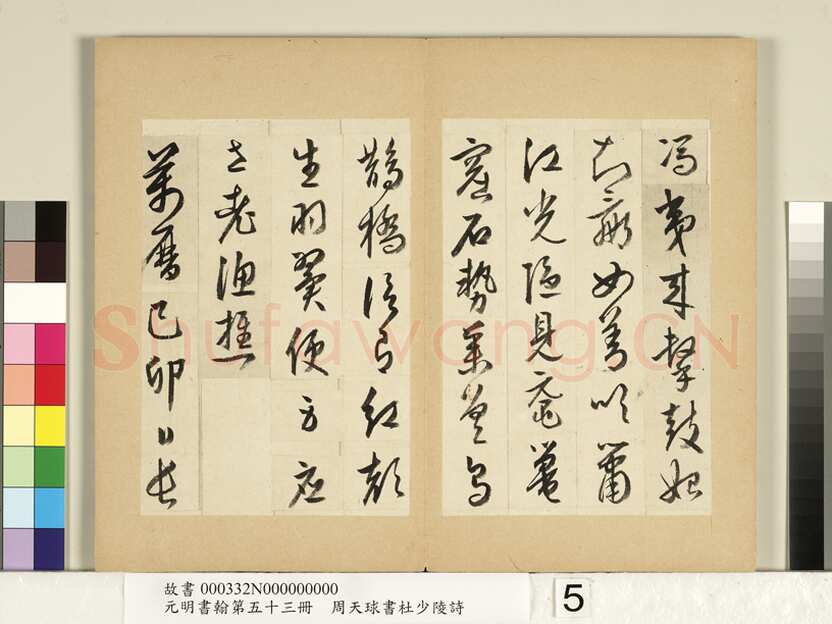 馮夷來擊鼓始
知嬴女善吹簫
江光隱見黿鼉
窟石勢參差烏
鵲橋紅顏
生羽翼便方應
老漁樵
萬曆己卯日長
Shufawang.CN
故書 000332N000000000
元明書翰第五十三冊 周天球書杜少陵詩
5